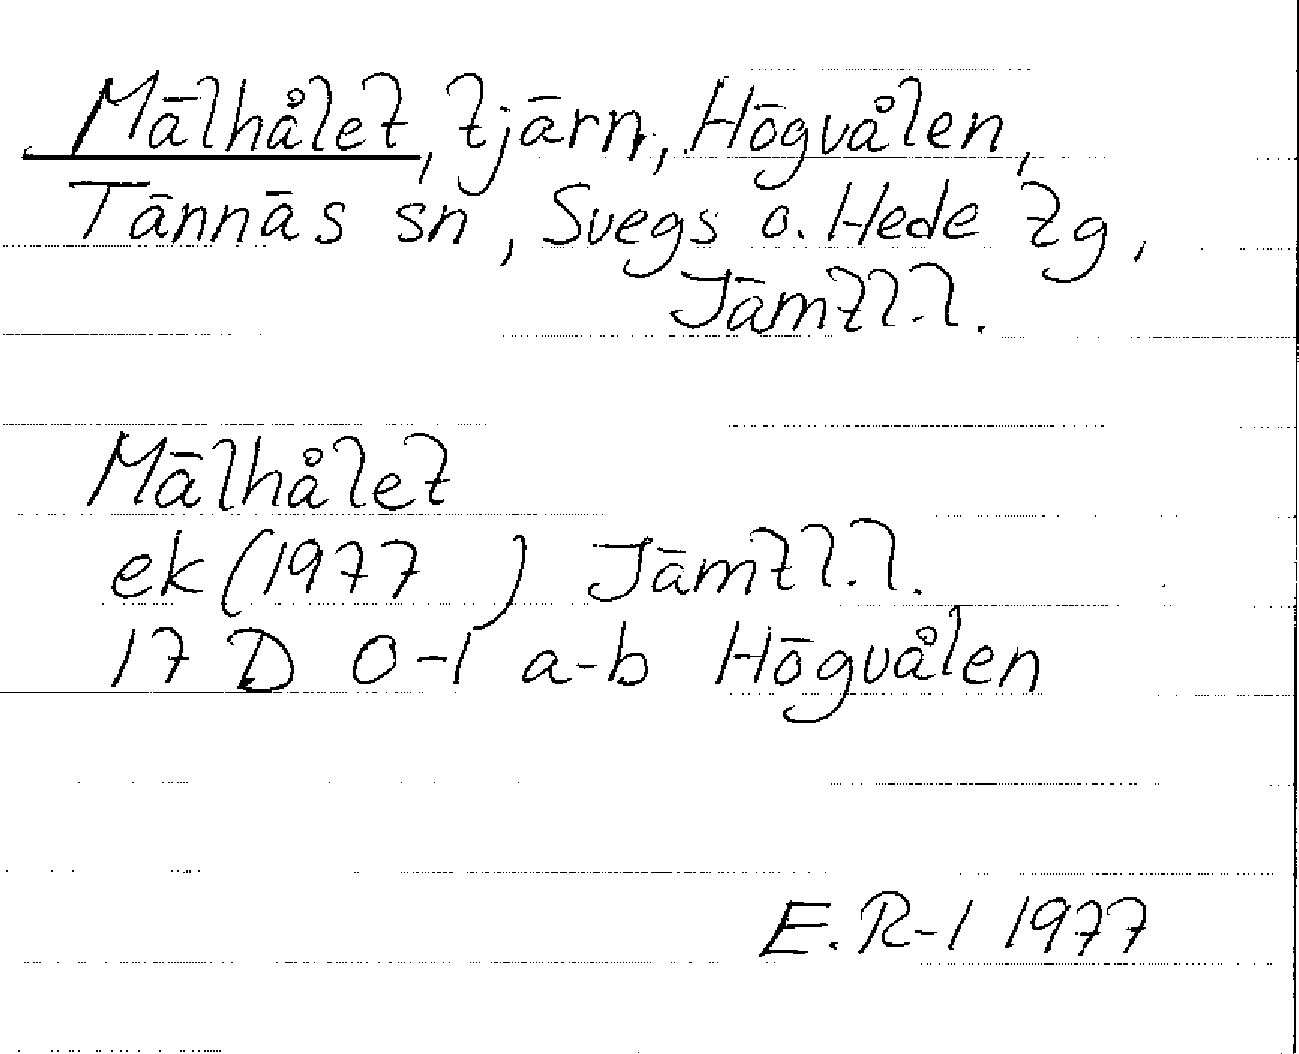 Mälhålet, tjärn, Högvålen,
Tännäs sn, Svegs o. Hede tg,
Jämtl.l.
Mälhålet
ek (1977 ) Jämtl.l.
17 D 0-1 a-b Högvålen
E. R-l 1977